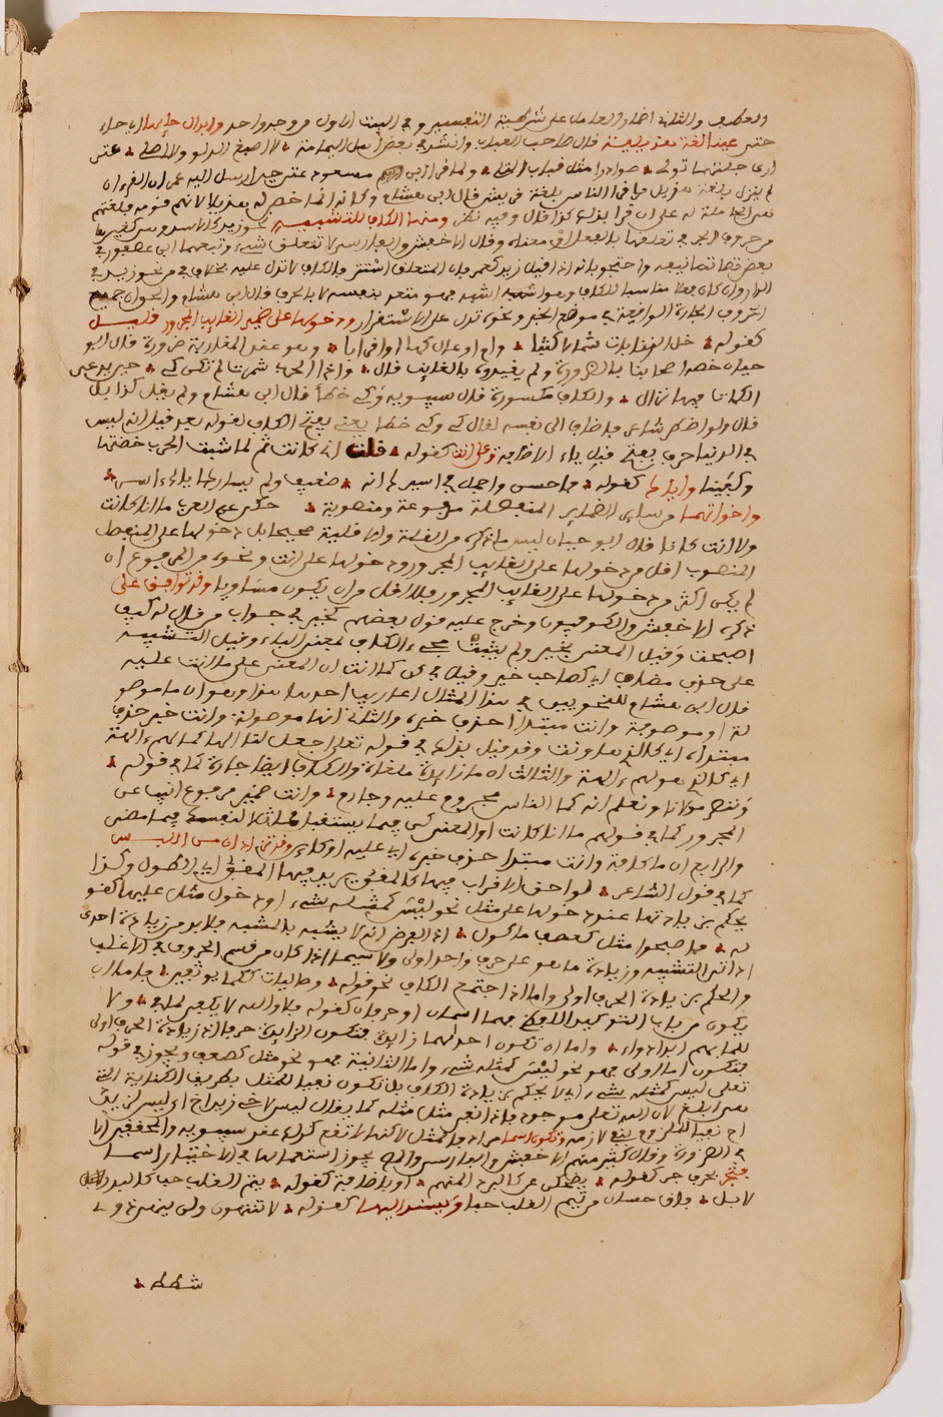 العطف والثلاثة اضمار العامل على شريطة التفسير وفي البيت الاول من وجه واحد وابدال حايها
حتى عينا لغة هذيلية قال صاحب العباب وانشد بعض اهل اليمامة لا اصبح الدلو ولا اصلي حتى
ارى جلتها تولي صوادرا مثل قباب التل ولما قرا ابن مسعود عتى حين ارسل اليه عمر ان القرءان
لم ينزل بلغة هذيل فاقرئ الناس بلغة قريش قال ابن هشام وكانه انما خص له هذيلا لانهم قومه فلغتهم
هي الحاملة له على ان قرا بذلك كذا قال وفيه نظر ومنها الكاف للتشبيه نحو زيد كالاسد وهي كغيرها
من حروف الجر في تعلقها بالفعل او في معناه وقال الاخفش والفارسي لا تتعلق بشيء وتبعهما ابن عصفور في
بعض تصانيفه واحتجوا بانه اذا قيل زيد كعمرو فان المتعلق استقر فالكاف لا تدل عليه بخلاف في من نحو زيد في
الدار وان كان فعلا مناسبا للكاف وهو اشبه فهو متعد بنفسه لا بالحرف قال ابن هشام والحق ان جميع
الحروف الجارة الواقعة في موضع الخبر ونحوه تدل على الاستقرار ودخولها على ضمير الغايب المجرور قليل
كقوله خلى الذنابات شمالا كثبا وام اوعال كها او اقربا وهو عند المغاربة ضرورة قال ابو
حيان خصه اصحابنا بالضرورة ولم يقيدوه بالغايب قال واذا الحرب شمرت لم تكن كي حين يدعو
الكماة فيها نزال والكاف مكسورة قال سيبويه وكي خطأ قال ابن هشام ولم يقل كذا بل
قال ولو اضطر شاعر فاضاف الى نفسه لقال كي وكي خطأ يعني بفتح الكاف لقوله بعد قيل انه ليس
في الدنيا حرف يفتح قبل ياء الاضافة وعلى انت كقوله قلت اني كانت ثم لما شبت الحرب خضتها
وكعيت واياك كقوله فاحسن واجمل في اسيرك انه ضعيف ولم ياسر كاياك ءاسر
واخواتهما من ساير الضماير المنفصلة مرفوعة ومنصوبة حكي عن العرب ما انا كانت
ولا انت كانا قال ابو حيان ليس ما ذكره من القلة واما قليه صحيحا بل دخولها على المنفصل
المنصوب اقل من دخولها على الغايب المجرور ودخولها على انت ونحوه من المرفوع ان
لم يكن اكثر من دخولها على الغايب المجرور فلا اقل من ان يكون مساويا وقد توافق على
ذكره الاخفش والكوفيون وخرج عليه قول بعضهم كخير في جواب من قال له كيف
اصبحت وقيل المعنى بخير ولم يثبت مجيء الكاف بمعنى الباء وقيل للتشبيه
على حذف مضاف اي كصاحب خير وقيل في كن كما انت ان المعنى على ما انت عليه
قال ابن هشام للنحويين في هذا المثال اعاريب احدها هذا وهو ان ما موصو
لة او موصوفة وانت مبتدا حذف خبره والثاني انها موصولة وانت خبر حذف
مبتداه اي كالذي هو انت وقد قيل بذلك في قوله تعلى اجعل لنا الها كما لهم ءالهة
اي كالذي هو لهم ءالهة والثالث ان ما زايدة ملغاة والكاف ايضا جارة كما في قوله
وننصر مولانا ونعلم انه كما الناس مجروم عليه وجارم وانت ضمير مرفوع انيب عن
المجرور كما في قولهم ما انا كانت او المعنى كن فيما يستقبل مماثلا لنفسك فيما مضى
والرابع ان ما كافة وانت مبتدا حذف خبره اي عليه او كاين وقد تزاد ان من اللبس
كما في قول الشاعر لواحق الاقراب فيها كالمقق يريد فيها المقق اي الطول وكذا
يحكم بزيادتها عند دخولها على مثل نحو ليس كمثله شيء او دخول مثل عليها كقو
له فاصبحوا مثل كعصف ماكول اذ الغرض انه لا يشبه بالمشبه فلا بد من زيادة احدى
اداتي التشبيه وزيادة ما هو على حرف واحد اولى ولا سيما اذا كان من قسم الحروف في الاغلب
والحكم بزيادة الحرف اولى واما اذا اجتمع الكاف نحو قوله وصاليات ككما يوثفين فاما ان
يكون من باب التوكيد اللفظي فهما اسمان او حرفان كقوله فلا والله لا يلفى لما بي ولا
للما بهم ابدا دواء واما ان تكون احداهما زايدة فتكون الزايدة حرفا اذ زيادة الحرف اولى
فتكون اما الاولى فهو نحو ليس كمثله شيء واما الثانية فهو نحو مثل كعصف ويجوز في قوله
تعلى ليس كمثله شيء ان لا يحكم بزيادة الكاف بل تكون نفيا للمثل بطريق الكناية التي
هي ابلغ لان الله تعلى موجود فاذا نفي مثل مثله كما يقال ليس لاخي زيد اخ اي ليس لزيد
اخ نفيا للملزوم بنفي لازمه وتكون اسما مرادفا لمثل لاكنها لا تقع كذلك عند سيبويه والمحققين الا
في الضرورة وقال كثير منهم الاخفش والفارسي وغيره يجوز استعمالها في الاختيار اسما
فتجر بحرف جر كقوله يضحكن عن كالبرد المنهم او باضافة كقوله تيم القلب حب كالبدر
لا بل فاق حسنا من تيم القلب حبا ويسند اليها كقوله لا تنتهون ولن ينهى ذوي
شطط